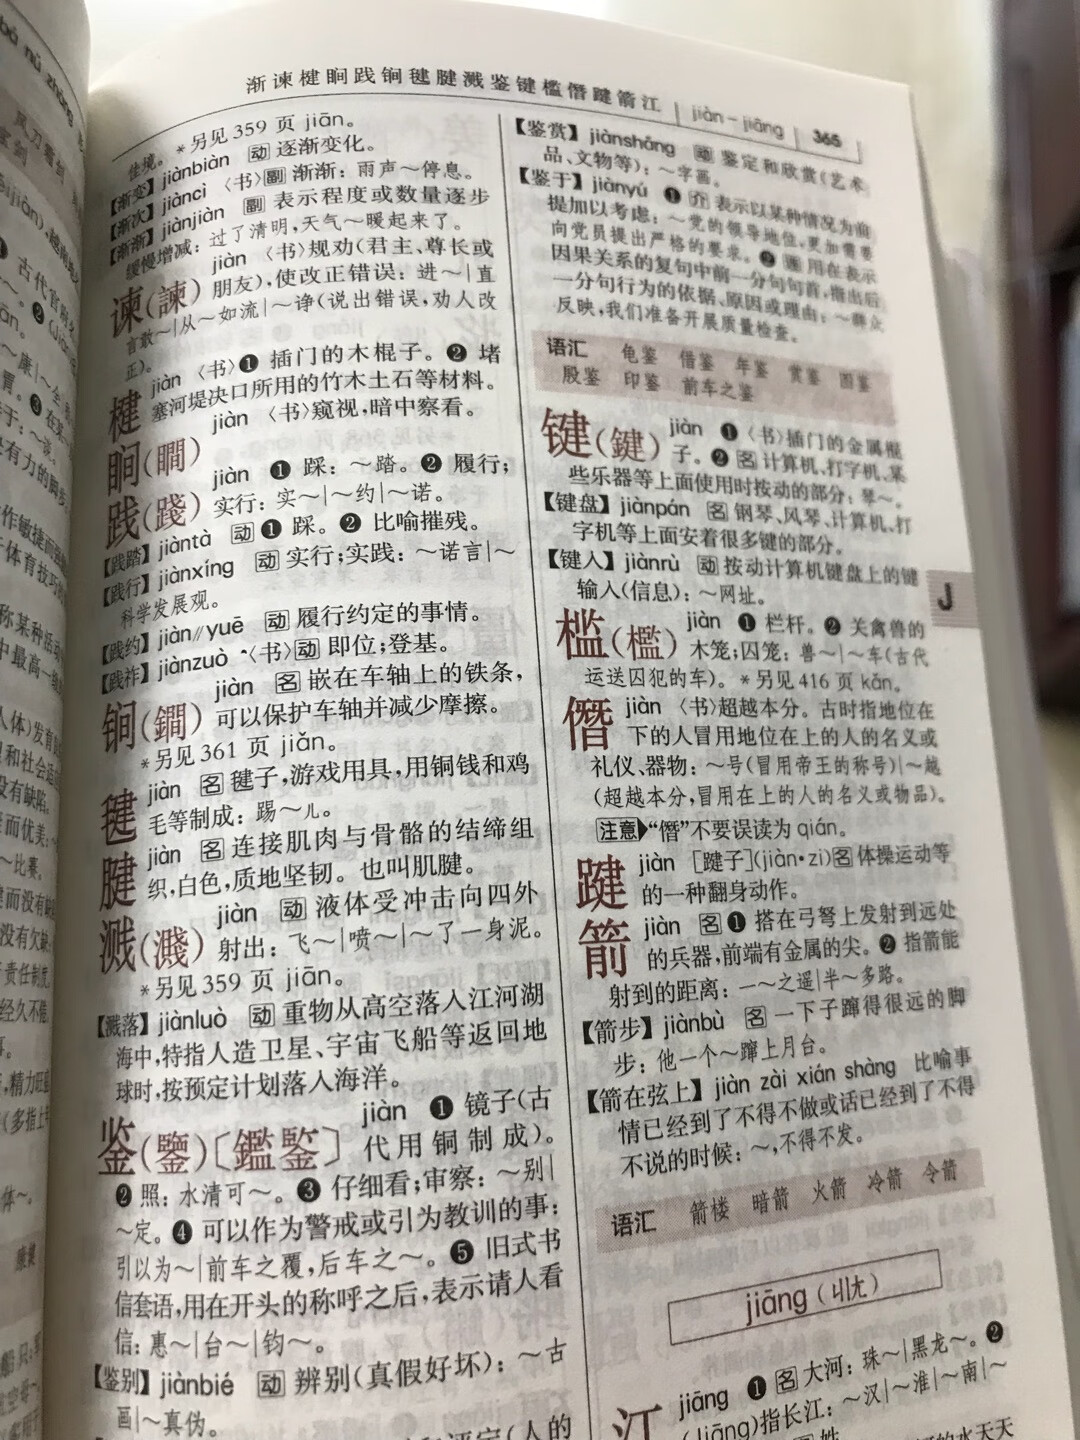 渐谏楗瞷践锏毽腱溅鉴键槛僭踺箭江 jiàn – jiāng 365
佳境。*另见 359 页 jiān。
【渐变】jiànbiàn 动 逐渐变化。
【渐次】jiàncì 〈书〉副 渐渐：雨声～停息。
【渐渐】jiànjiàn 副 表示程度或数量逐步
缓慢增减：过了清明，天气～暖起来了。
谏(諫) jiàn 〈书〉规劝(君主、尊长或
朋友)，使改正错误：进～|直
言敢～|从～如流|～诤(说出错误，劝人改
正)。
楗 jiàn 〈书〉❶ 插门的木棍子。❷ 堵
塞河堤决口所用的竹木土石等材料。
瞷(瞯) jiàn 〈书〉窥视，暗中察看。
践(踐) jiàn ❶ 踩：～踏。❷ 履行；
实行：实～|～约|～诺。
【践踏】jiàntà 动 ❶ 踩。❷ 比喻摧残。
【践行】jiànxíng 动 实行；实践：～诺言|～
科学发展观。
【践约】jiàn//yuē 动 履行约定的事情。
【践祚】jiànzuò 〈书〉动 即位；登基。
锏(鐧) jiàn 名 嵌在车轴上的铁条，
可以保护车轴并减少摩擦。
*另见 361 页 jiǎn。
毽 jiàn 名 毽子，游戏用具，用铜钱和鸡
毛等制成：踢～儿。
腱 jiàn 名 连接肌肉与骨骼的结缔组
织，白色，质地坚韧。也叫肌腱。
溅(濺) jiàn 动 液体受冲击向四外
射出：飞～|喷～|～了一身泥。
*另见 359 页 jiān。
【溅落】jiànluò 动 重物从高空落入江河湖
海中，特指人造卫星、宇宙飞船等返回地
球时，按预定计划落入海洋。
鉴(鑒)〔鑑鍳〕 jiàn ❶ 镜子(古
代用铜制成)。
❷ 照：水清可～。❸ 仔细看；审察：～别|
～定。❹ 可以作为警戒或引为教训的事：
引以为～|前车之覆，后车之～。❺ 旧式书
信套语，用在开头的称呼之后，表示请人看
信：惠～|台～|钧～。
【鉴别】jiànbié 动 辨别(真假好坏)：～古
画|～真伪。
【鉴赏】jiànshǎng 动 鉴定和欣赏(艺术
品、文物等)：～字画。
【鉴于】jiànyú ❶ 介 表示以某种情况为前
提加以考虑：～党的领导地位，更加需要
向党员提出严格的要求。❷ 连 用在表示
因果关系的复句中前一分句句首，指出后
一分句行为的依据、原因或理由：～群众
反映，我们准备开展质量检查。
语汇 龟鉴 借鉴 年鉴 赏鉴 图鉴
殷鉴 印鉴 前车之鉴
键(鍵) jiàn ❶〈书〉插门的金属棍
子。❷ 名 计算机、打字机、某
些乐器等上面使用时按动的部分：琴～。
【键盘】jiànpán 名 钢琴、风琴、计算机、打
字机等上面安着很多键的部分。
【键入】jiànrù 动 按动计算机键盘上的键
输入(信息)：～网址。
J
槛(檻) jiàn ❶ 栏杆。❷ 关禽兽的
木笼；囚笼：兽～|～车(古代
运送囚犯的车)。*另见 416 页 kǎn。
僭 jiàn 〈书〉超越本分。古时指地位在
下的人冒用地位在上的人的名义或
礼仪、器物：～号(冒用帝王的称号)|～越
(超越本分，冒用在上的人的名义或物品)。
注意 “僭”不要误读为 qián。
踺 jiàn ［踺子］(jiàn·zi) 名 体操运动等
的一种翻身动作。
箭 jiàn 名 ❶ 搭在弓弩上发射到远处
的兵器，前端有金属的尖。❷ 指箭能
射到的距离：一～之遥|半～多路。
【箭步】jiànbù 名 一下子蹿得很远的脚
步：他一个～蹿上月台。
【箭在弦上】jiàn zài xián shàng 比喻事
情已经到了不得不做或话已经到了不得
不说的时候：～，不得不发。
语汇 箭楼 暗箭 火箭 冷箭 令箭
jiāng (ㄐㄧㄤ)
江 jiāng ❶ 名 大河：珠～|黑龙～。❷
(Jiāng)指长江：～汉|～淮|～南|～